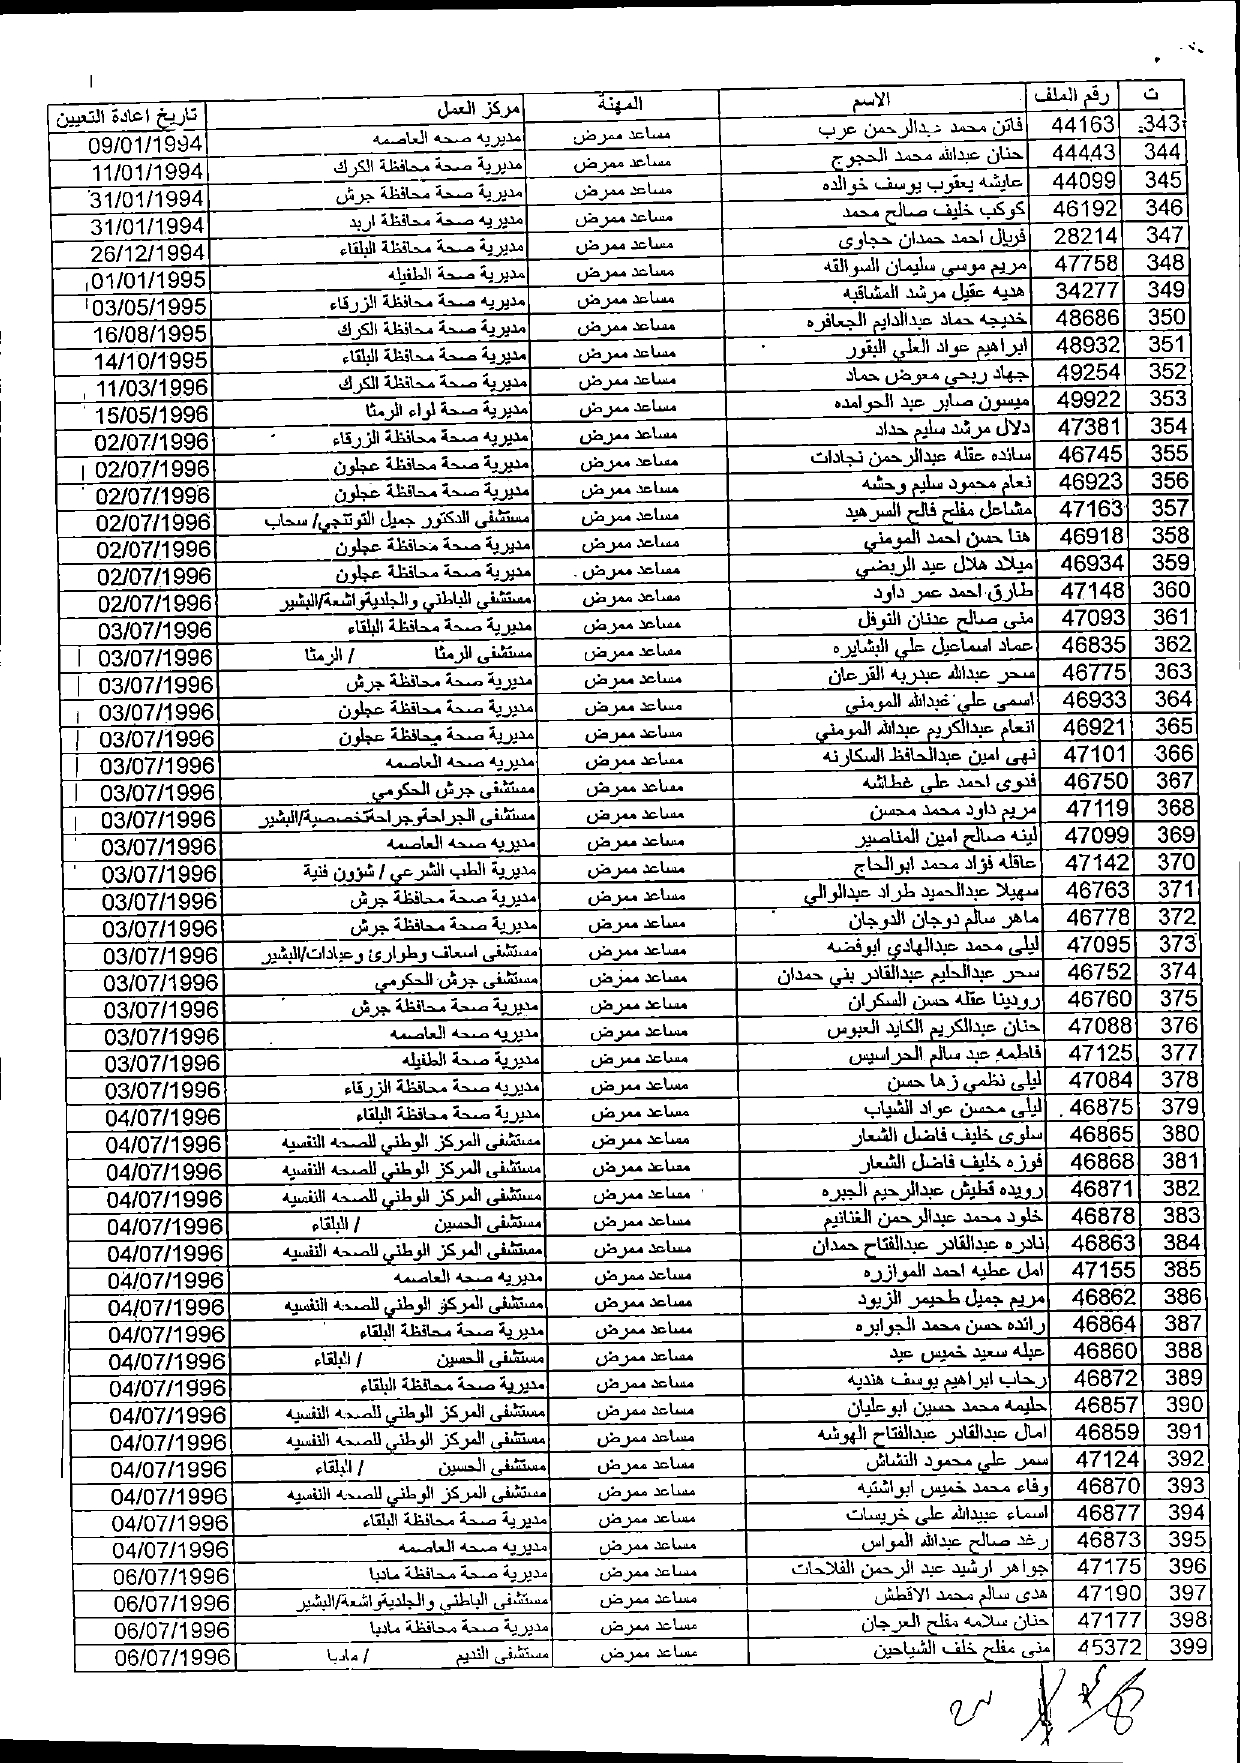 ت رقم الملف الاسم المهنة مركز العمل تاريخ اعادة التعيين
343 44163 فاتن محمد عبدالرحمن عرب مساعد ممرض مديريه صحه العاصمه 09/01/1994
344 44443 حنان عبدالله محمد الحجوج مساعد ممرض مديرية صحة محافظة الكرك 11/01/1994
345 44099 عايشه يعقوب يوسف خوالده مساعد ممرض مديرية صحة محافظة جرش 31/01/1994
346 46192 كوكب خليف صالح محمد مساعد ممرض مديرية صحة محافظة اربد 31/01/1994
347 28214 فريال احمد حمدان حجاوى مساعد ممرض مديرية صحة محافظة البلقاء 26/12/1994
348 47758 مريم موسى سليمان السوالقه مساعد ممرض مديرية صحة الطفيله 01/01/1995
349 34277 هديه عقيل مرشد المشاقبه مساعد ممرض مديريه صحة محافظة الزرقاء 03/05/1995
350 48686 خديجه حماد عبدالدايم الجعافره مساعد ممرض مديرية صحة محافظة الكرك 16/08/1995
351 48932 ابراهيم عواد العلي البقور مساعد ممرض مديرية صحة محافظة البلقاء 14/10/1995
352 49254 جهاد ربحي معوض حماد مساعد ممرض مديرية صحة محافظة الكرك 11/03/1996
353 49922 ميسون صابر عبد الحوامده مساعد ممرض مديرية صحة لواء الرمثا 15/05/1996
354 47381 دلال مرشد سليم حداد مساعد ممرض مديريه صحة محافظة الزرقاء 02/07/1996
355 46745 سانده عقله عبدالرحمن نجادات مساعد ممرض مديرية صحة محافظة عجلون 02/07/1996
356 46923 نعام محمود سليم وحشه مساعد ممرض مديرية صحة محافظة عجلون 02/07/1996
357 47163 مشاعل مفلح فالح السرهيد مساعد ممرض مستشفى الدكتور جميل التوتنجي/ سحاب 02/07/1996
358 46918 هنا حسن احمد المومني مساعد ممرض مديرية صحة محافظة عجلون 02/07/1996
359 46934 ميلاد هلال عيد الربضي مساعد ممرض مديرية صحة محافظة عجلون 02/07/1996
360 47148 طارق احمد عمر داود مساعد ممرض مستشفى الباطني والجلدية واشعة/البشير 02/07/1996
361 47093 منى صالح عدنان النوفل مساعد ممرض مديرية صحة محافظة البلقاء 03/07/1996
362 46835 عماد اسماعيل علي البشايره مساعد ممرض مستشفى الرمثا / الرمثا 03/07/1996
363 46775 سحر عبدالله عبدربه القرعان مساعد ممرض مديرية صحة محافظة جرش 03/07/1996
364 46933 اسمى علي عبدالله المومني مساعد ممرض مديرية صحة محافظة عجلون 03/07/1996
365 46921 انعام عبدالكريم عبدالله المومني مساعد ممرض مديرية صحة محافظة عجلون 03/07/1996
366 47101 نهى امين عبدالحافظ السكارنه مساعد ممرض مديريه صحه العاصمه 03/07/1996
367 46750 فدوى احمد علي غطاشه مساعد ممرض مستشفى جرش الحكومي 03/07/1996
368 47119 مريم داود محمد محسن مساعد ممرض مستشفى الجراحة وجراحة تخصصية/البشير 03/07/1996
369 47099 لينه صالح امين المناصير مساعد ممرض مديريه صحه العاصمه 03/07/1996
370 47142 عاقله فؤاد محمد ابوالحاج مساعد ممرض مديرية الطب الشرعي / شؤون فنية 03/07/1996
371 46763 سهيلا عبدالحميد طراد عبدالوالي مساعد ممرض مديرية صحة محافظة جرش 03/07/1996
372 46778 ماهر سالم دوجان الدوجان مساعد ممرض مديرية صحة محافظة جرش 03/07/1996
373 47095 ليلى محمد عبدالهادي ابوفضه مساعد ممرض مستشفى اسعاف وطوارئ وعيادات/البشير 03/07/1996
374 46752 سحر عبدالحليم عبدالقادر بني حمدان مساعد ممرض مستشفى جرش الحكومي 03/07/1996
375 46760 رودينا عقله حسن السكران مساعد ممرض مديرية صحة محافظة جرش 03/07/1996
376 47088 حنان عبدالكريم الكايد العبوس مساعد ممرض مديريه صحه العاصمه 03/07/1996
377 47125 فاطمه عبد سالم الحراسيس مساعد ممرض مديرية صحة الطفيله 03/07/1996
378 47084 ليلى نظمي زها حسن مساعد ممرض مديريه صحة محافظة الزرقاء 03/07/1996
379 46875 ليلى محسن عواد الشياب مساعد ممرض مديرية صحة محافظة البلقاء 04/07/1996
380 46865 سلوى خليف فاضل الشعار مساعد ممرض مستشفى المركز الوطني للصحه النفسيه 04/07/1996
381 46868 فوزه خليف فاضل الشعار مساعد ممرض مستشفى المركز الوطني للصحه النفسيه 04/07/1996
382 46871 رويده قطيش عبدالرحيم الجبره مساعد ممرض مستشفى المركز الوطني للصحه النفسيه 04/07/1996
383 46878 خلود محمد عبدالرحمن الغنانيم مساعد ممرض مستشفى الحسين / البلقاء 04/07/1996
384 46863 نادره عبدالقادر عبدالفتاح حمدان مساعد ممرض مستشفى المركز الوطني للصحه النفسيه 04/07/1996
385 47155 امل عطيه احمد الموازره مساعد ممرض مديريه صحه العاصمه 04/07/1996
386 46862 مريم جميل طحيمر الزيود مساعد ممرض مستشفى المركز الوطني للصحه النفسيه 04/07/1996
387 46864 رائده حسن محمد الجوابره مساعد ممرض مديرية صحة محافظة البلقاء 04/07/1996
388 46860 عبله سعيد خميس عيد مساعد ممرض مستشفى الحسين / البلقاء 04/07/1996
389 46872 رحاب ابراهيم يوسف هنديه مساعد ممرض مديرية صحة محافظة البلقاء 04/07/1996
390 46857 حليمه محمد حسين ابوعليان مساعد ممرض مستشفى المركز الوطني للصحه النفسيه 04/07/1996
391 46859 امال عبدالقادر عبدالفتاح الهوشه مساعد ممرض مستشفى المركز الوطني للصحه النفسيه 04/07/1996
392 47124 سمر علي محمود النشاش مساعد ممرض مستشفى الحسين / البلقاء 04/07/1996
393 46870 وفاء محمد خميس ابواشتيه مساعد ممرض مستشفى المركز الوطني للصحه النفسيه 04/07/1996
394 46877 اسماء عبيدالله علي خريسات مساعد ممرض مديرية صحة محافظة البلقاء 04/07/1996
395 46873 رغد صالح عبدالله المواس مساعد ممرض مديريه صحه العاصمه 04/07/1996
396 47175 جواهر ارشيد عبد الرحمن الفلاحات مساعد ممرض مديرية صحة محافظة مادبا 06/07/1996
397 47190 هدى سالم محمد الاقطش مساعد ممرض مستشفى الباطني والجلدية واشعة/البشير 06/07/1996
398 47177 حنان سلامه مفلح العرجان مساعد ممرض مديرية صحة محافظة مادبا 06/07/1996
399 45372 منى مفلح خلف الشياحين مساعد ممرض مستشفى النديم / مادبا 06/07/1996